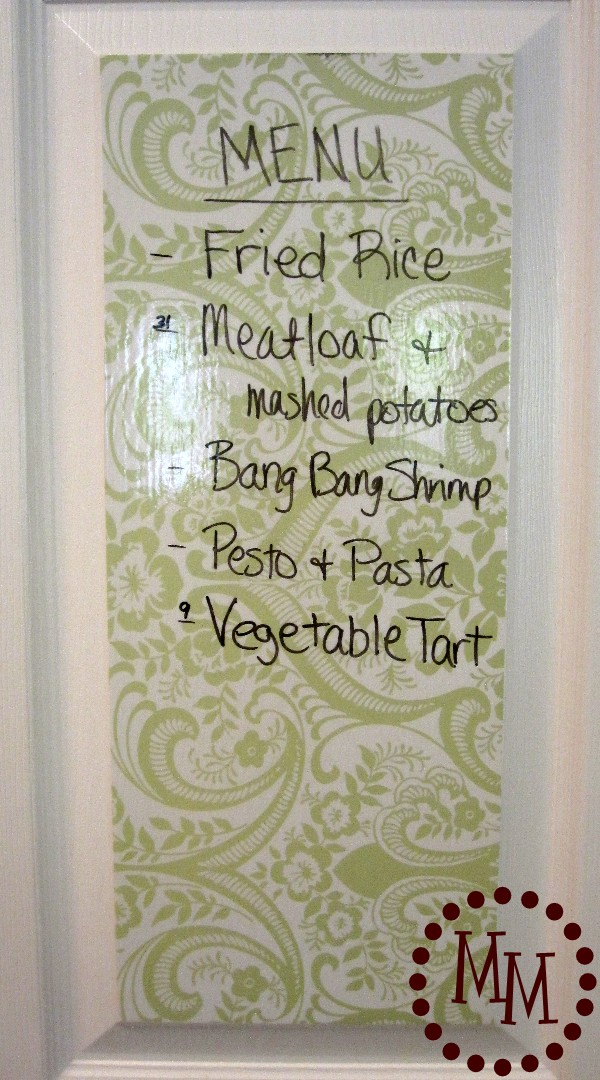 MENU
- Fried Rice
31 Meatloaf &
mashed potatoes
- Bang Bang Shrimp
- Pesto & Pasta
9 Vegetable Tart
MM